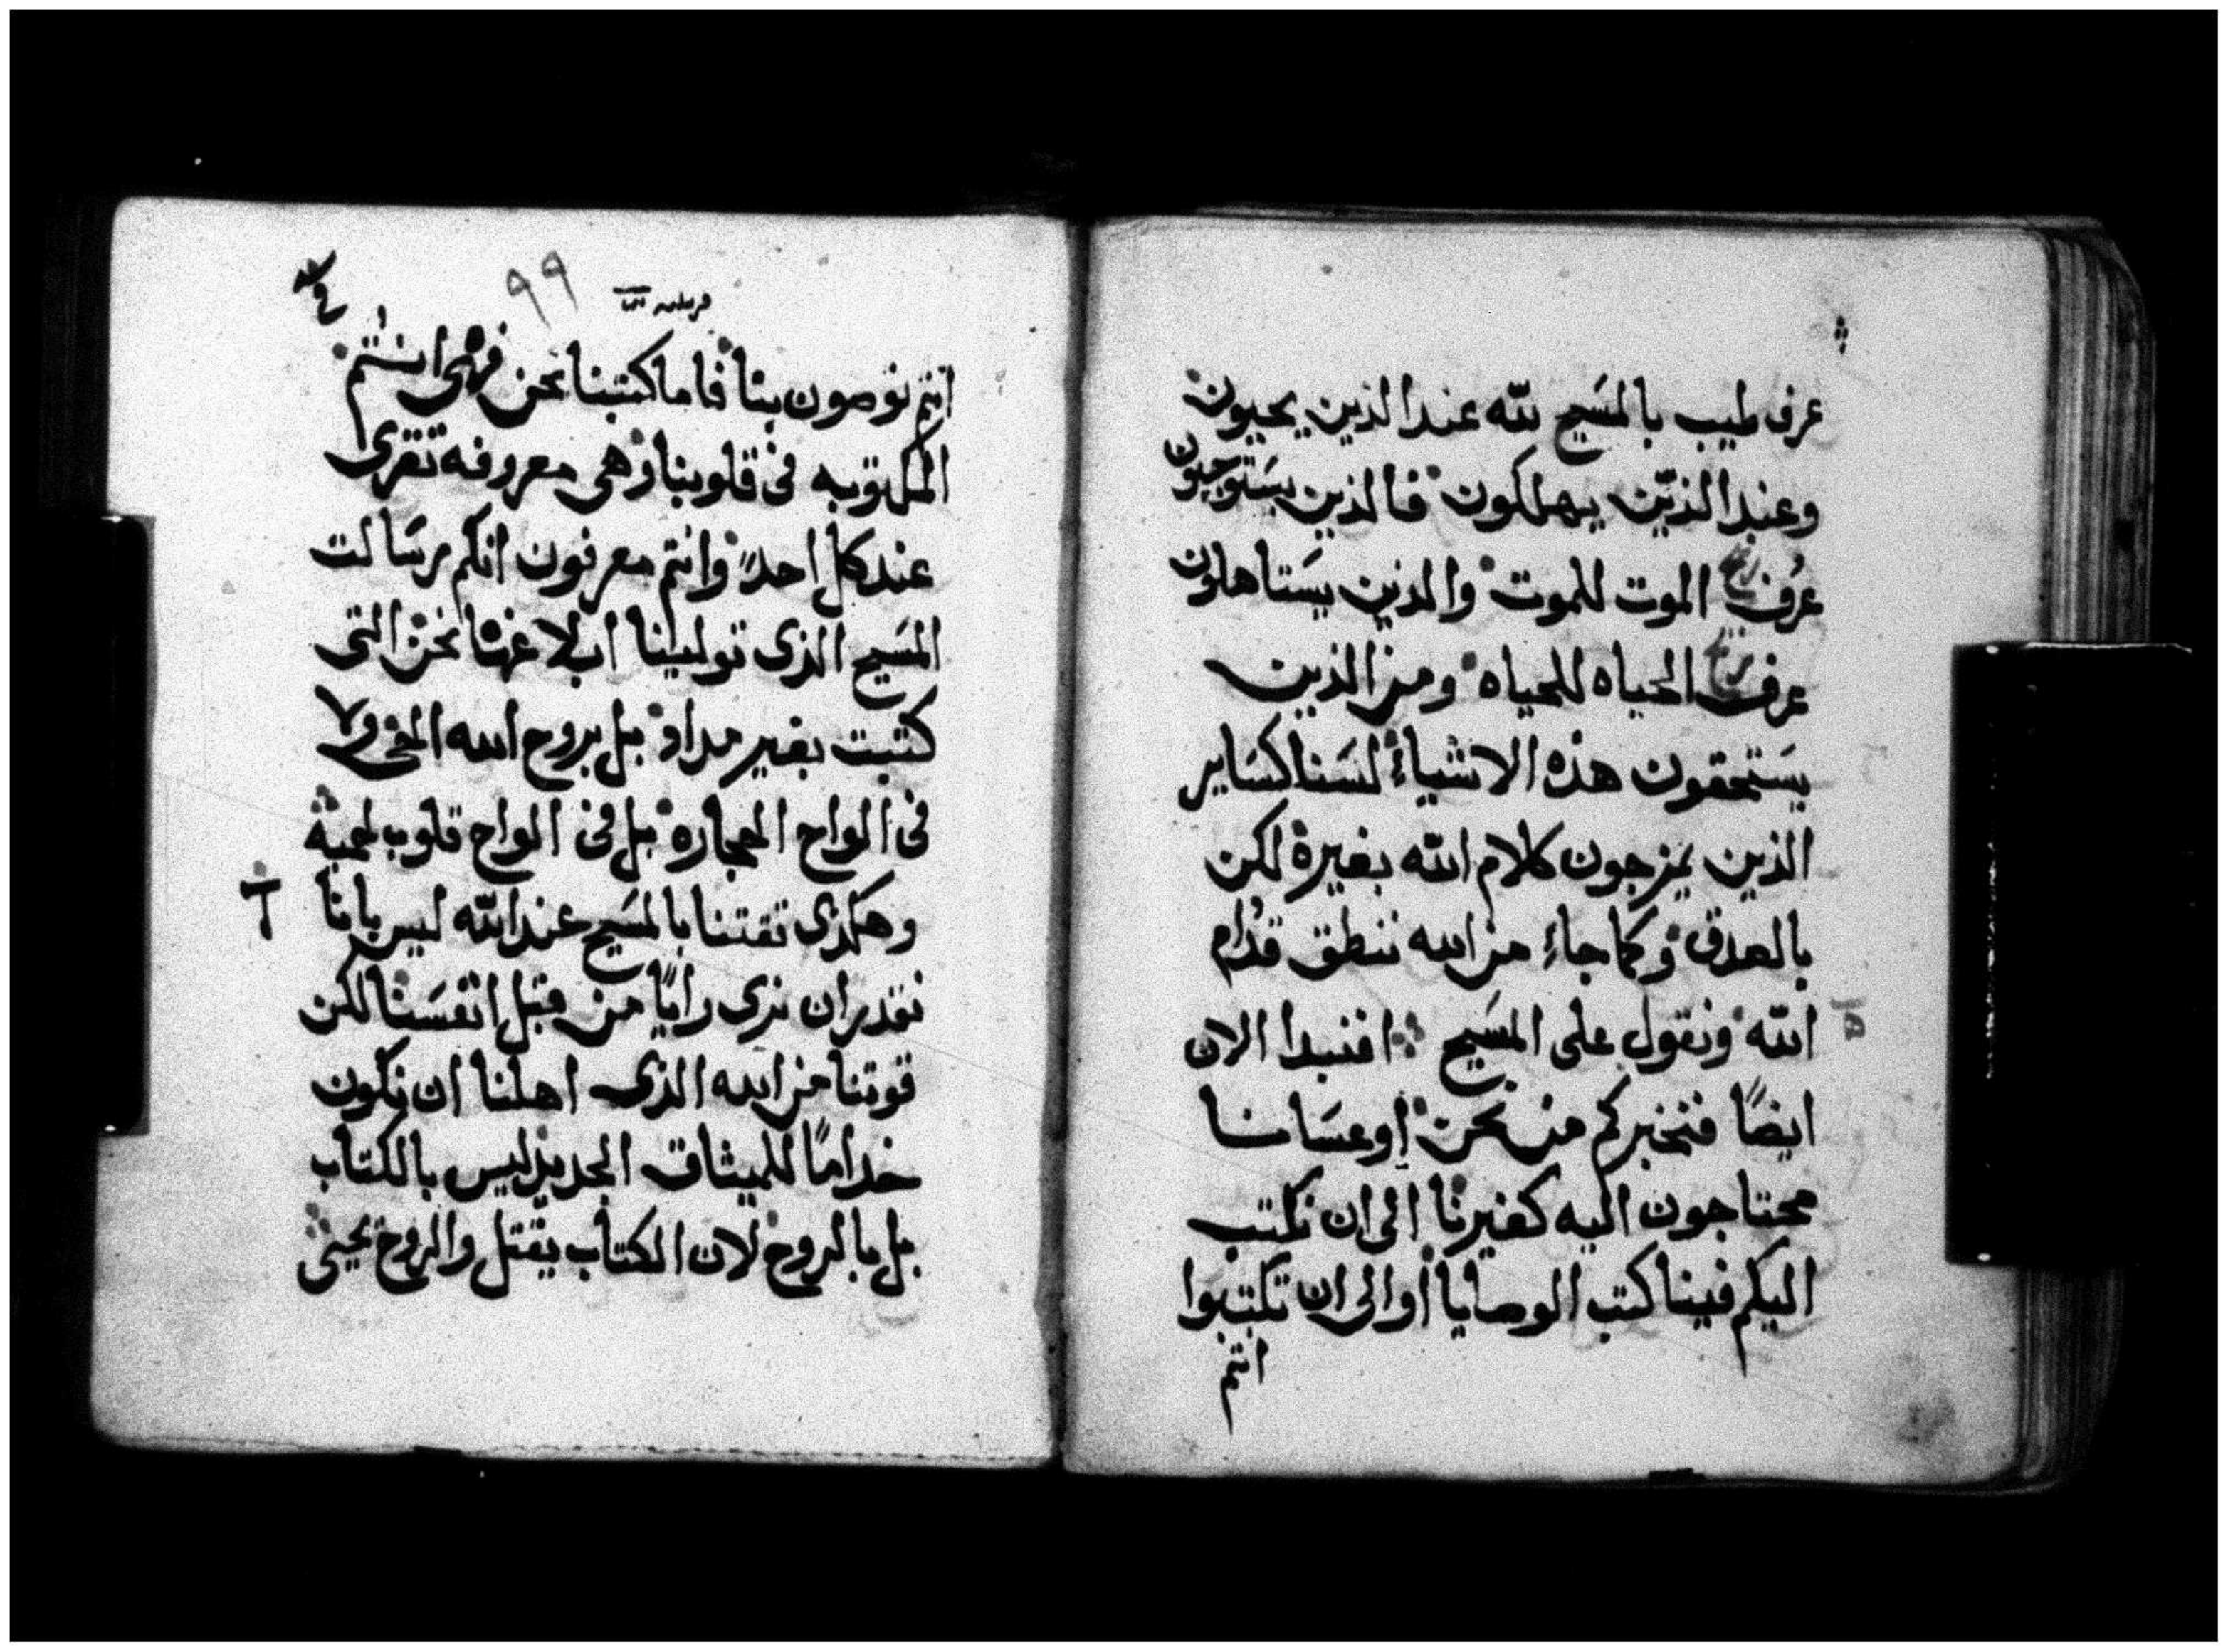 عرف طيب بالمسَيح لله عند الذين يحيون
وعند الذيّن يهلكون فالذين يسَتوجبون
عُرف الموت للموت والذين يسَتاهلون
عرف الحياه للحياه ومن الذين
يسَتحقون هذه الاشياءِ لسَنا كسَاير
الذين يمزجون كلام الله بغيره لكن
بالصدق وكما جاءِ من الله ننطق قدُام
الله ونقول على المسَيح افنبدا الان
ايضًا فنخبركم من نحن او عسَانا
محتاجون اليه كغيرنا الى ان نكتب
اليكم فينا كتب الوصايا او الى ان تكتبوا
انتم
٩٩
انتم توصون بنا فاما كتبنا نحن فهى انتم
المكتوبه فى قلوبنا وهى معروفه تقرى
عند كل احدً وانتم معرفون انكم رسَالت
المسَيح الذى توليينا ابلاغها نحن التى
كتبت بغير مداد بل بروح الله الحى ولا
فى الواح الحجاره بل فى الواح قلوب لحميه
وهكذى ثقتنا بالمسَيح عند الله ليس بانا
نقدر ان نرى رايًا من قبل انفسَنا لكن
قوتنا من الله الذى اهلنا ان نكون
خدامًا للميثاق الجديد ليس بالكتاب
بل بالروح لان الكتاب يقتل والروح يحيى